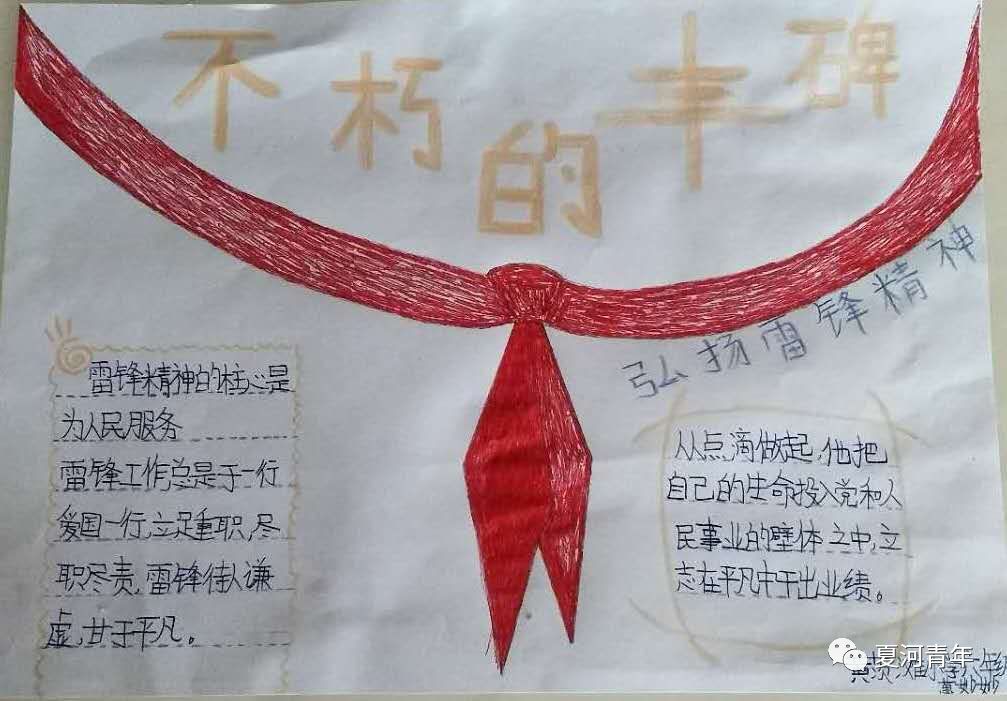 不朽的丰碑
弘扬雷锋精神
雷锋精神的核心是
为人民服务
雷锋工作总是干一行
爱国一行,立足重职,尽
职尽责,雷锋待人谦
虚,甘于平凡。
从点滴做起,他把
自己的生命投入党和人
民事业的壁体之中,立
志在平凡中干出业绩。
夏河青年
小学六年级